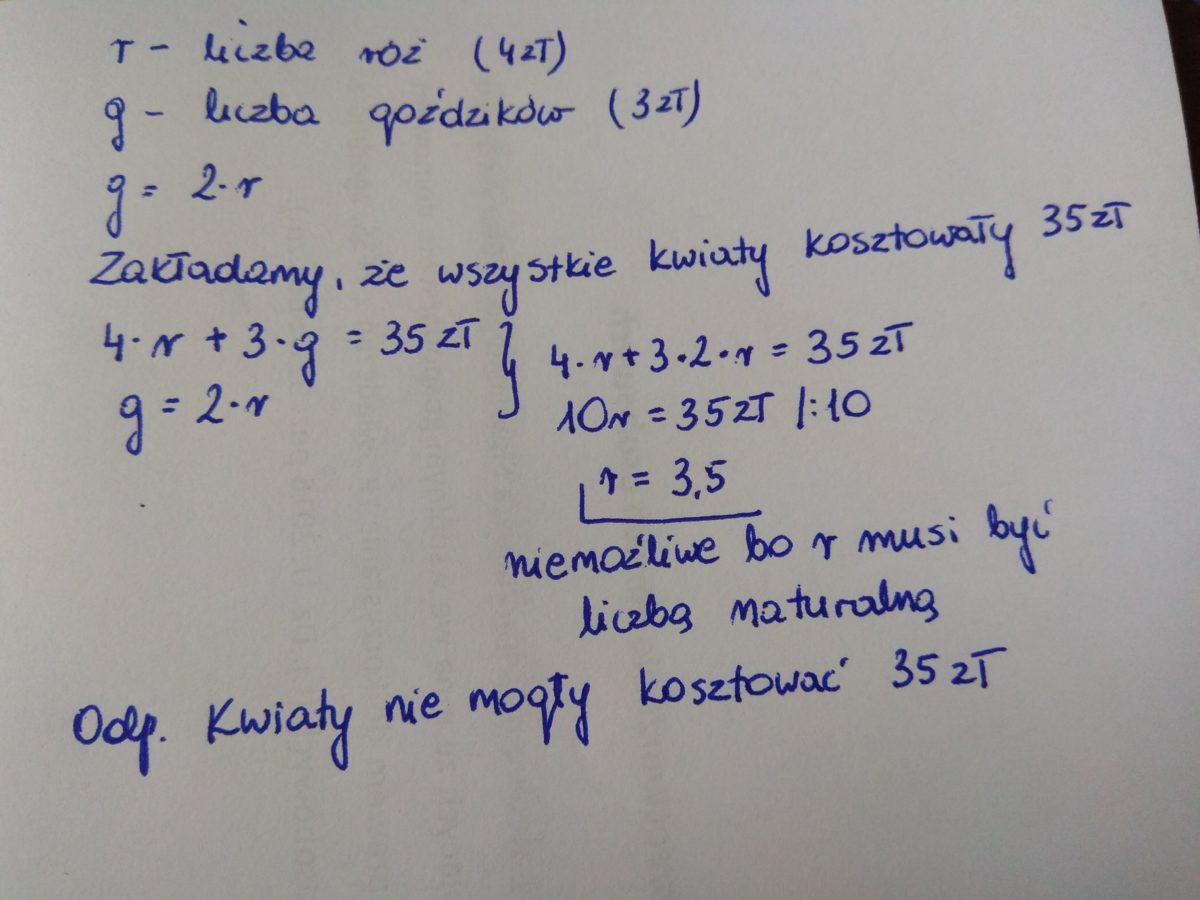 r - liczba róż (4zł)
g - liczba goździków (3zł)
g = 2·r
Zakładamy, że wszystkie kwiaty kosztowały 35zł
4·r + 3·g = 35zł } 4·r + 3·2·r = 35zł
g = 2·r
10r = 35zł /:10
r = 3,5
niemożliwe bo r musi być
liczbą naturalną
Odp. Kwiaty nie mogły kosztować 35zł